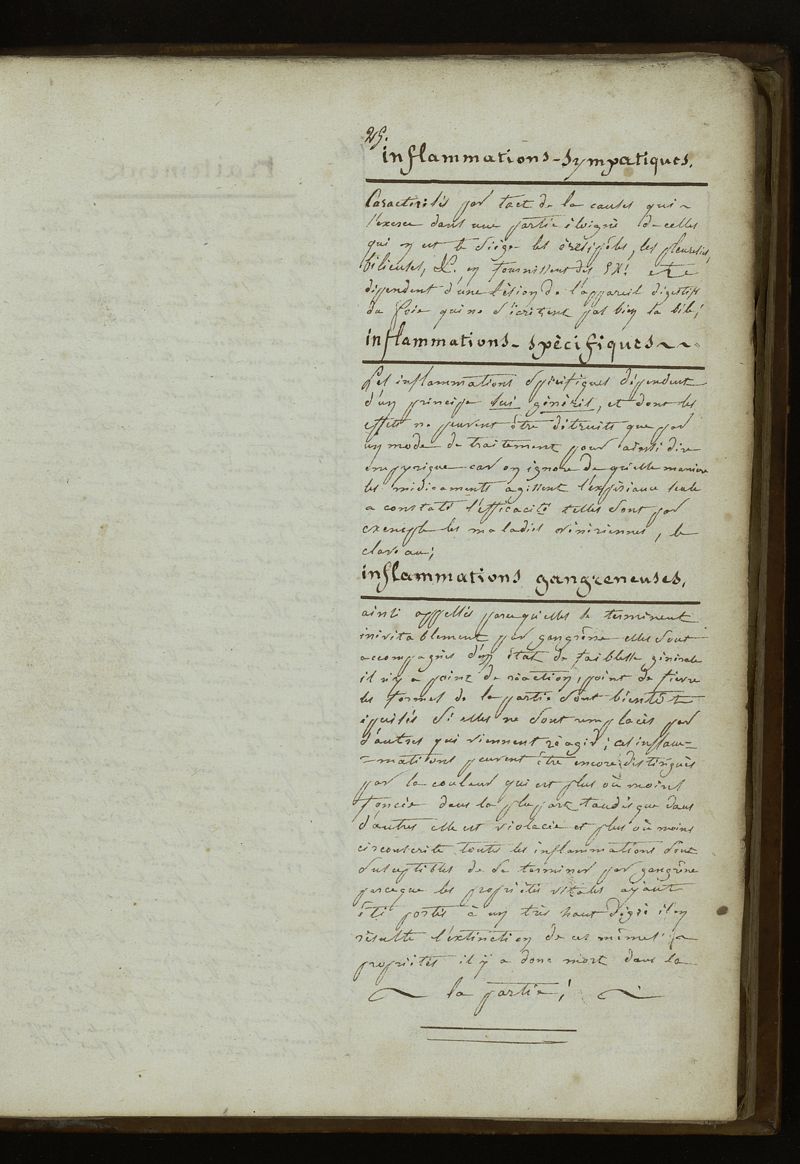 25.
inflammations-sympatiques.
Caracterisés par tact de la causes qui
s'exerce dans une partie éloigné de celles
qui en est le siége les érésipèles, les pleuresies,
bilieuses, &c. en fournissent des EX! etre
dépendent d'une lésion de l'appareil digestifs
du foie qui ne sécrètent pas bien la bile;
inflammations-spècifiques
Les inflammations spécifiques dépendent
d'un principe sui généris, et dont les
effets ne peuvent être détruits que par
un mode de traitement pour ainsi dire
empyrique car on ignore de quelle maniere
les médicaments agissent l'expériance seule
a constaté l'efficacité telles sont par
exemple les maladies vénériennes, le
claveau;
inflammations gangreneuses.
ainsi appellés parcequ'elles se terminent
inévitablement par gangréne elles sont
accompagnés d'un état de faiblesse générale
il n'y a point de réaction, point de fièvre
les formes de la partie sont bientôt
épuisés si elles ne sont remplacés par
d'autres qui viennent réagir; ces inflam=
=mations peuvent être encore distingués
par la couleur qui est plus où moins
foncée dans la plupart tandisque dans
d'autres elle est violacée et plus où moins
circonscrite toute les inflammations sont
susceptibles de se terminer par gangréne
parceque les propriétés vitales ayant
été portés à un très haut dégré il en
résulte l'extinction de ces mêmes
propriétés il y a donc mort dans la
la partie;
traitement